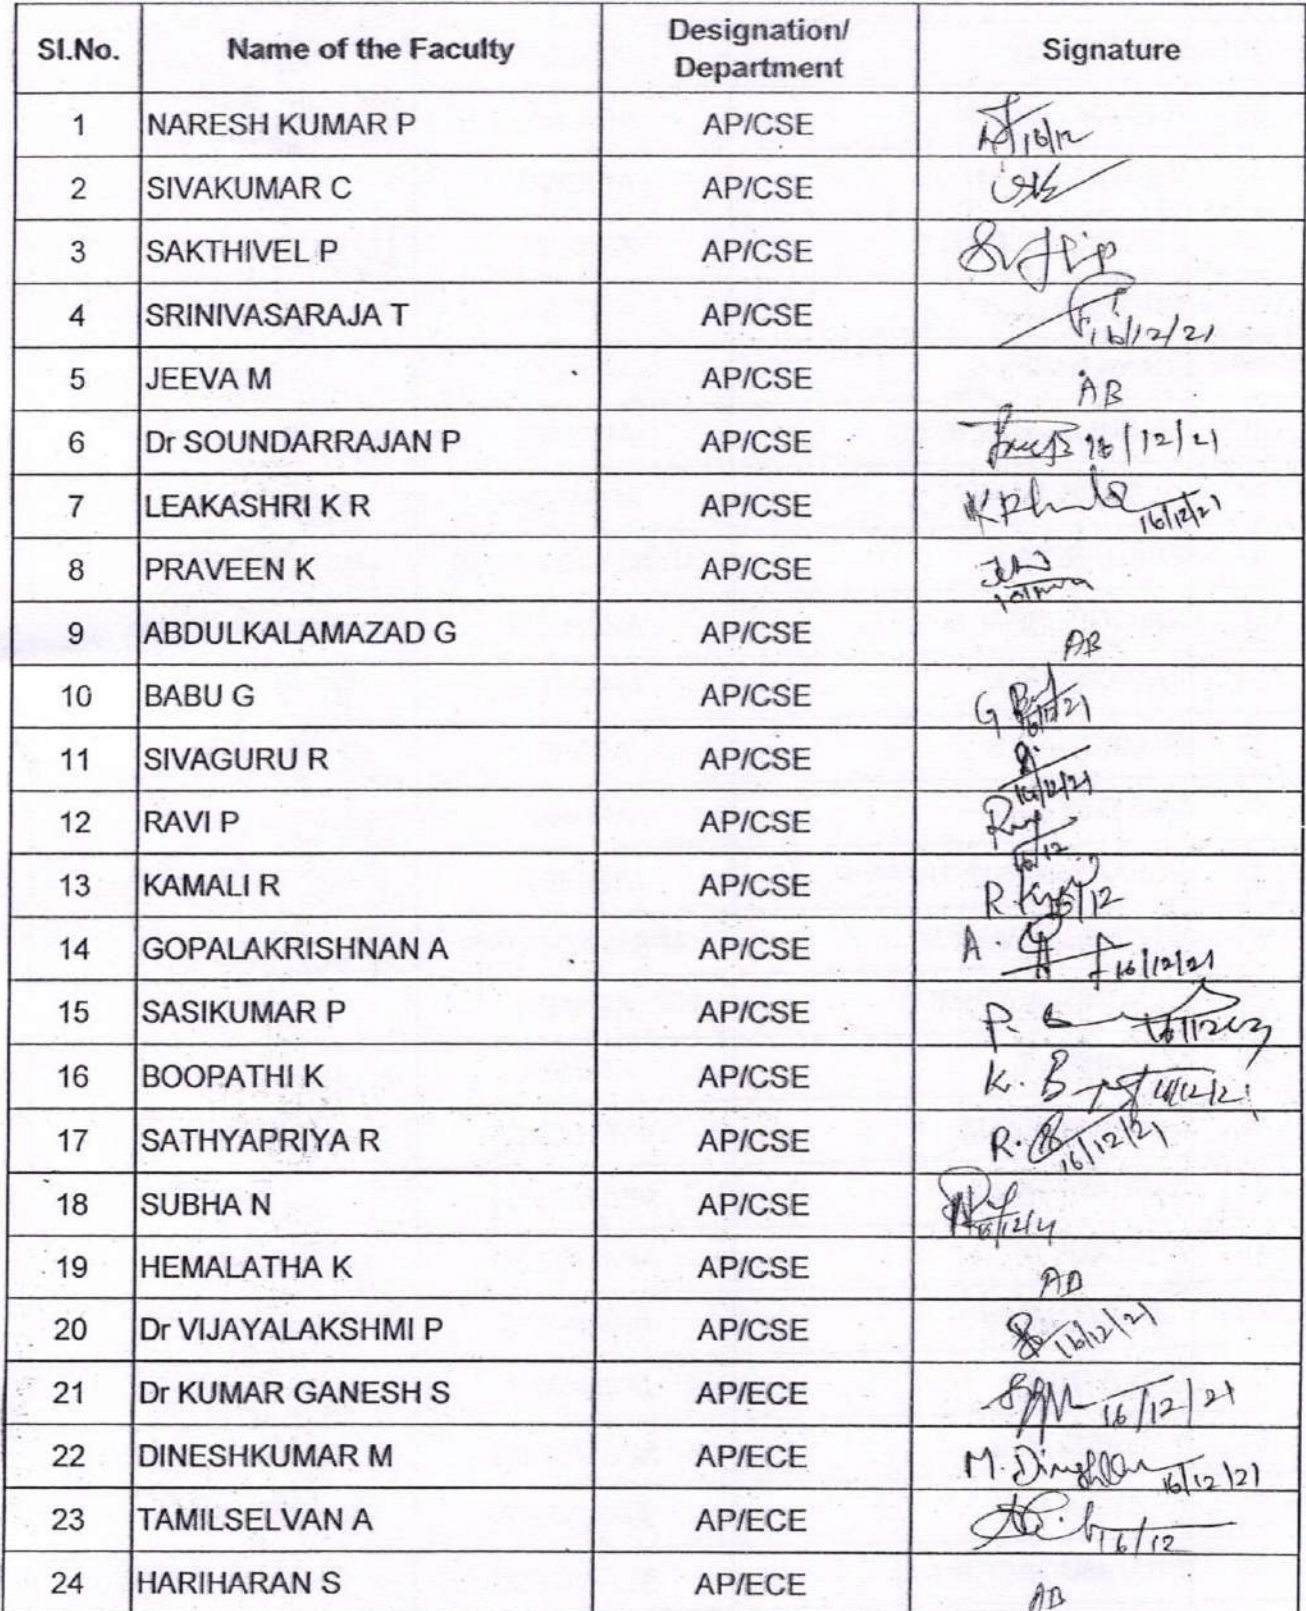 Sl.No. Name of the Faculty Designation/ Department Signature
1 NARESH KUMAR P AP/CSE 16/12
2 SIVAKUMAR C AP/CSE
3 SAKTHIVEL P AP/CSE
4 SRINIVASARAJA T AP/CSE 16/12/21
5 JEEVA M AP/CSE AB
6 Dr SOUNDARRAJAN P AP/CSE 16/12/21
7 LEAKASHRI K R AP/CSE 16/12/21
8 PRAVEEN K AP/CSE
9 ABDULKALAMAZAD G AP/CSE AB
10 BABU G AP/CSE G 16/12/21
11 SIVAGURU R AP/CSE 16/12/21
12 RAVI P AP/CSE 16/12
13 KAMALI R AP/CSE R 16/12
14 GOPALAKRISHNAN A AP/CSE A 16/12/21
15 SASIKUMAR P AP/CSE P.
16 BOOPATHI K AP/CSE K. B 16/12/21
17 SATHYAPRIYA R AP/CSE R. 16/12/21
18 SUBHA N AP/CSE 16/12/21
19 HEMALATHA K AP/CSE AB
20 Dr VIJAYALAKSHMI P AP/CSE 16/12/21
21 Dr KUMAR GANESH S AP/ECE 16/12/21
22 DINESHKUMAR M AP/ECE M. 16/12/21
23 TAMILSELVAN A AP/ECE 16/12
24 HARIHARAN S AP/ECE AB